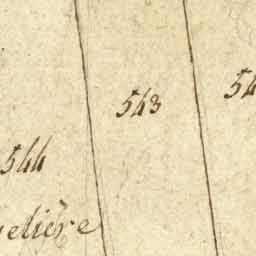 543
54
544
elière